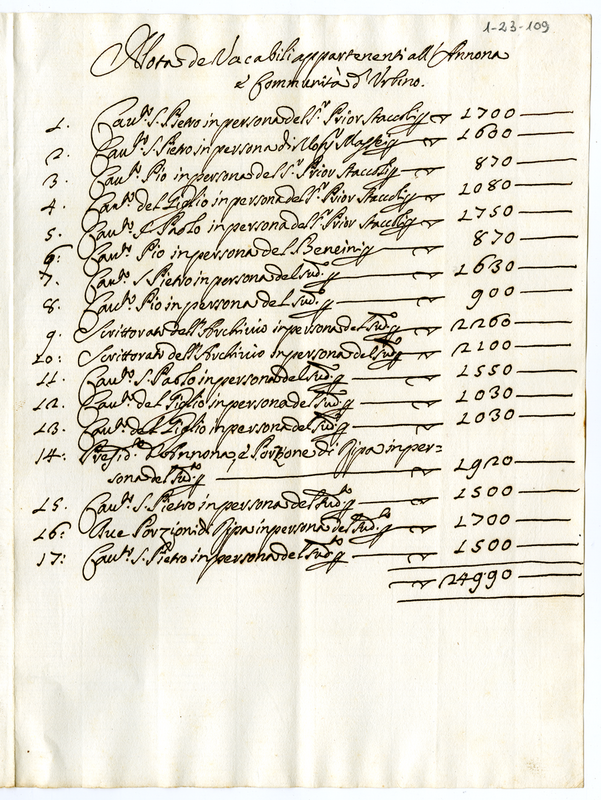 1-23-109
Nota de Vacabili appartenenti all'Annona
e Communità d'Urbino.
1. Caual.to S. Pietro in persona del S.r Prior Staccoli 1700
2. Caual.to S. Pietro in persona di 1630
3. Caual.to Pio in persona del S.r Prior Staccoli 870
4. Caual.to del Giglio in persona del S.r Prior Staccoli 1080
5. Caual.to S. Paolo in persona del S.r Prior Staccoli 1750
6: Caual.to Pio in persona del Beneini 870
7. Caual.to S. Pietro in persona del Sud.to 1630
8. Caual.to Pio in persona del Sud.to 900
9. Scrittorato dell'Archiuio in persona del Sud.to 2260
10: Scrittorato dell'Archiuio in persona del Sud.to 2100
11. Caual.to S. Paolo in persona del Sud.to 1550
12. Caual.to del Giglio in persona del Sud.to 1030
13. Caual.to del Giglio in persona del Sud.to 1030
14: Presid.to d'Annona, e Porzione di Ripa in per=
sona del Sud.to 1920
15. Caual.to S. Pietro in persona del Sud.to 1500
16: Due Porzioni di Ripa in persona del Sud.to 1700
17: Caual.to S. Pietro in persona del Sud.to 1500
24990